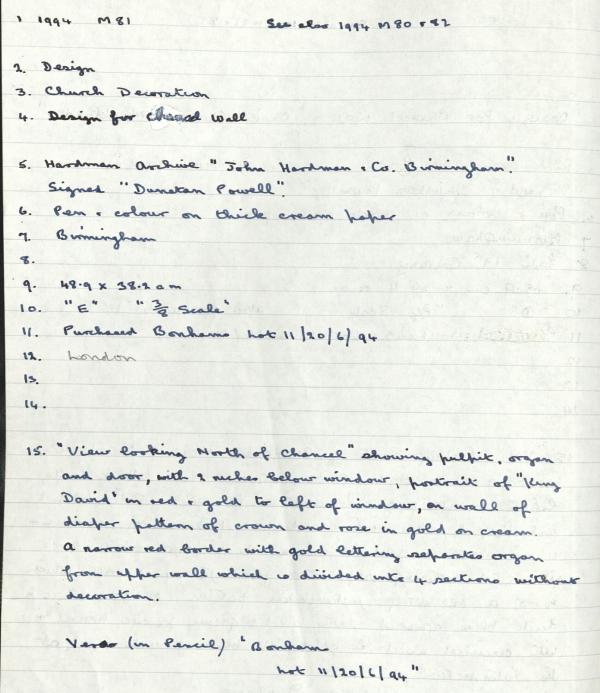 1 1994 M81 See also 1994 M80 & 82
2. Design
3. Church Decoration
4. Design for wall
5. Hardman Archive "John Hardman & Co. Birmingham".
Signed "Dunstan Powell".
6. Pen & colour on thick cream paper
7. Birmingham
8.
9. 48.9 x 38.2 cm
10. "E" "3/8 Scale"
11. Purchased Bonhams Lot 11/20/6/94
12. London
13.
14.
15. "View looking North of Chancel" showing pulpit, organ
and door, with 2 niches below window, portrait of "King
David" in red & gold to left of window, on wall of
diaper pattern of crown and rose in gold on cream.
A narrow red border with gold lettering separates organ
from upper wall which is divided into 4 sections without
decoration.
Verso (in Pencil) "Bonham
Lot 11/20/6/94"